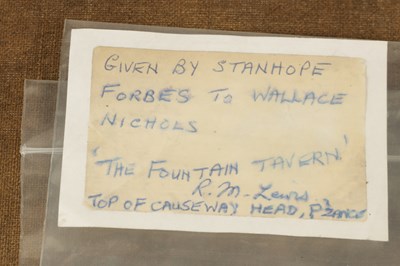 GIVEN BY STANHOPE
FORBES TO WALLACE
NICHOLS.
'THE FOUNTAIN TAVERN'
R. M. Lewis,
TOP OF CAUSEWAY HEAD, P'ZANCE